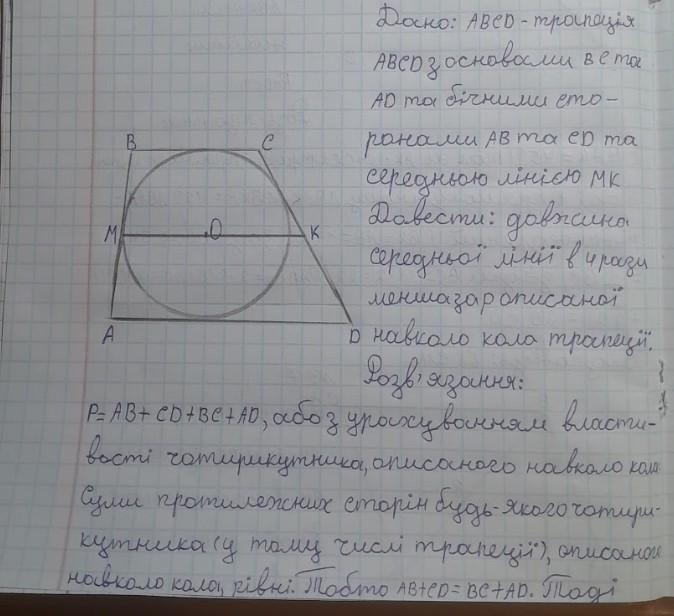 Дано: ABCD - трапеція
ABCD з основами BC та
AD та бічними сто-
ронами AB та CD та
середньою лінією MK
Довести: довжина
середньої лінії в 4 рази
менша за P описаної
навколо кола трапеції.
Розв'язання:
B
C
M
O
K
A
D
P= AB+ CD+BC+AD, або з урахуванням власти-
вості чотирикутника, описаного навколо кола
Суми протилежних сторін будь-якого чотири-
кутника (у тому числі трапеції), описаного
навколо кола, рівні. Тобто AB+CD= BC+AD. Тоді